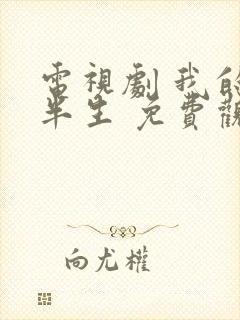 電視劇我的
半生 免費觀
向尤權